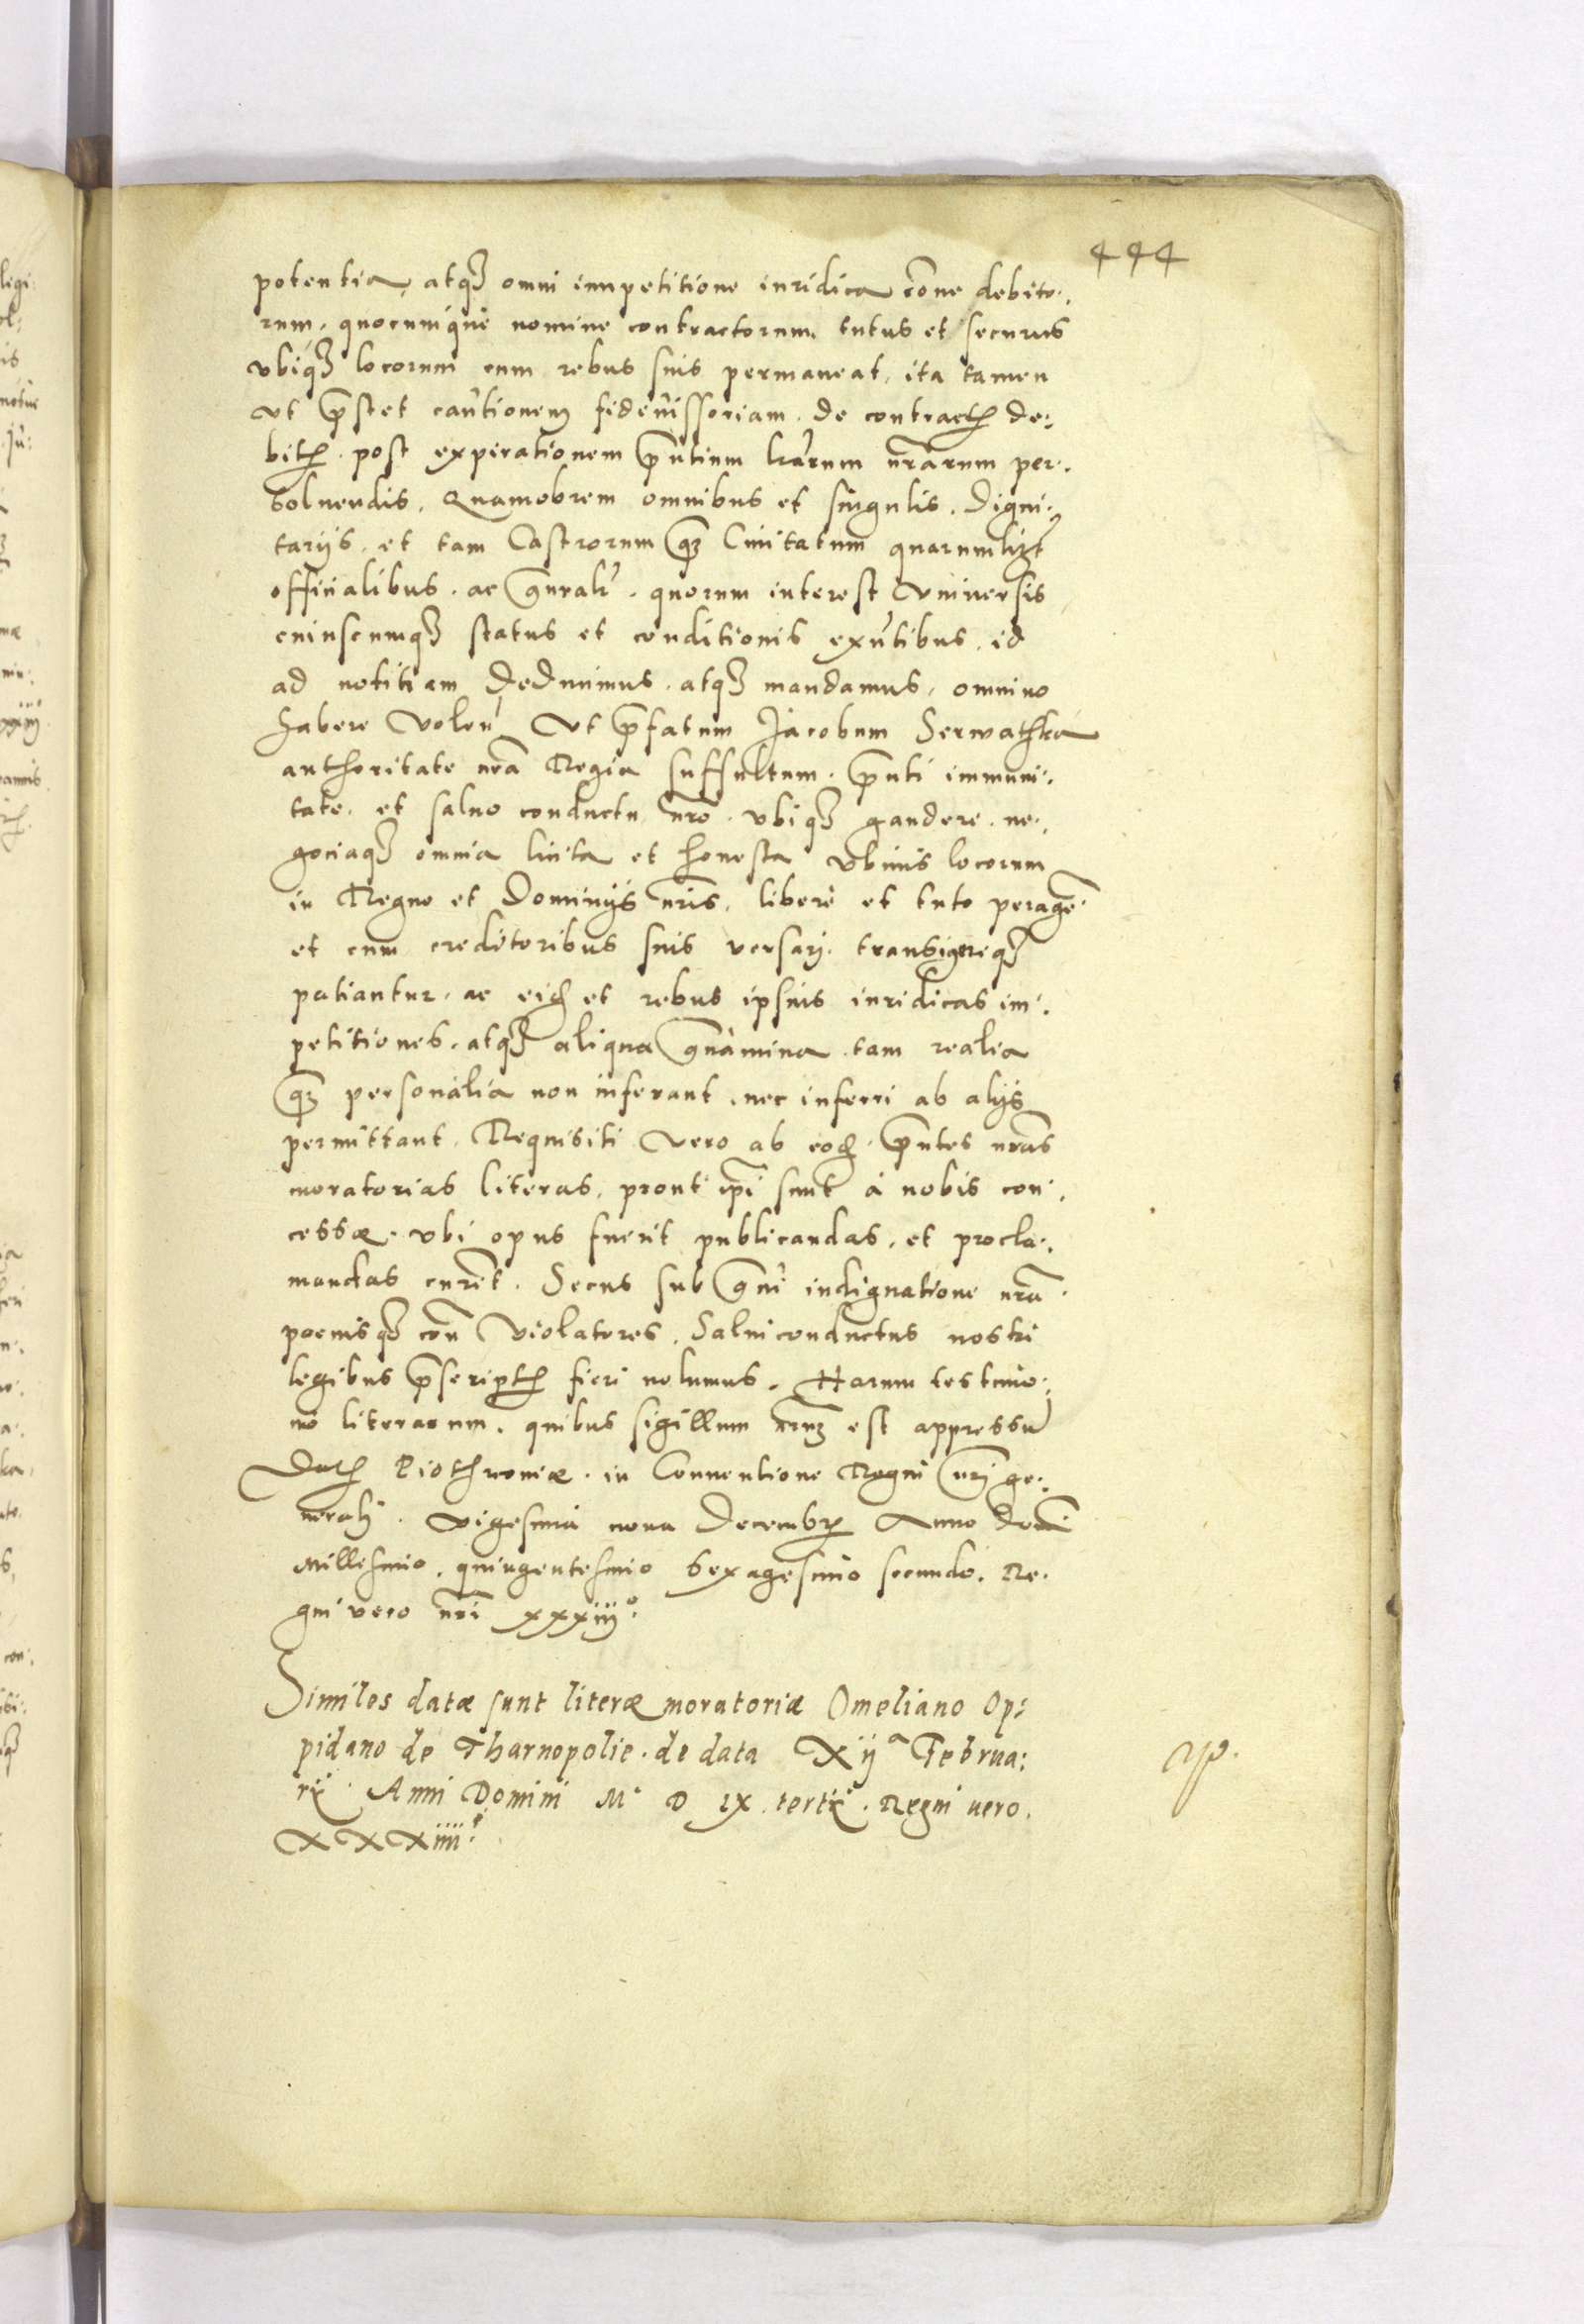 444
potentia, atq₃ omni impetitione iuridica rōne debito:
rum, quocumque nomine contractorum. tutus et securus
vbiq₃ locorum cum rebus suis permaneat, ita tamen
vt p̄stet cautionem fideiussoriam. de contractꝭ de:
bitꝭ. post expirationem p̄ntium lr̄arum nr̄arum per:
soluendis. Quamobrem omnibus et singulis. Digni:
tarijs. et tam Castrorum q̄ꝫ Ciuitatum quarumlibet
officialibus. ac gn̄ralr̄. quorum interest vniuersis
cuiuscumq₃ status et conditionis exn̄tibus. id
ad notitiam deducimus. atq₃ mandamus, omnino
habere volen̄ vt p̄fatum Jacobum Serwathka
authoritate nr̄a Regia suffultum. p̄nti immuni:
tate. et saluo conductu nr̄o. vbiq₃ gaudere. ne:
gociaq₃ omnia licita et honesta vbiuis locorum
in Regno et Dominijs nr̄is. libere et tuto peragē
et cum creditoribus suis versari. transigereq₃
patiantur. ac eid̄ et rebus ipsius iuridicas im:
petitiones. atq₃ aliqua grauamina. tam realia
q̄ꝫ personalia non inferant. nec inferri ab alijs
permittant. Requisiti vero ab eod̄. p̄ntes nr̄as
moratorias literas. prout ip̄i sunt à nobis con:
cessæ. vbi opus fuerit publicandas. et procla:
mandas curēt. Secus sub graui indignatione nr̄a
poenisq₃ con̄ violatores. Saluiconductus nostri
legibus p̄scriptꝭ fieri nolumus. Harum testimo:
nio literarum. quibus sigillum nr̄mꝫ est appressū
Datꝭ Piothrcouiæ. in Conuentione Regni nr̄i ge:
nerali. vigesima nona Decembrꝭ Anno Domī
Millesimo. quingentesimo sexagesimo secundo. Re:
gni vero nr̄i xxxiijº.
Similes datæ sunt literæ moratoriæ Omeliano Op:
pidano de Tharnopolie. de data XIJª Februa:
rij Anni Domini Mº D LX tertij. Regni uero.
XXXiiijº.